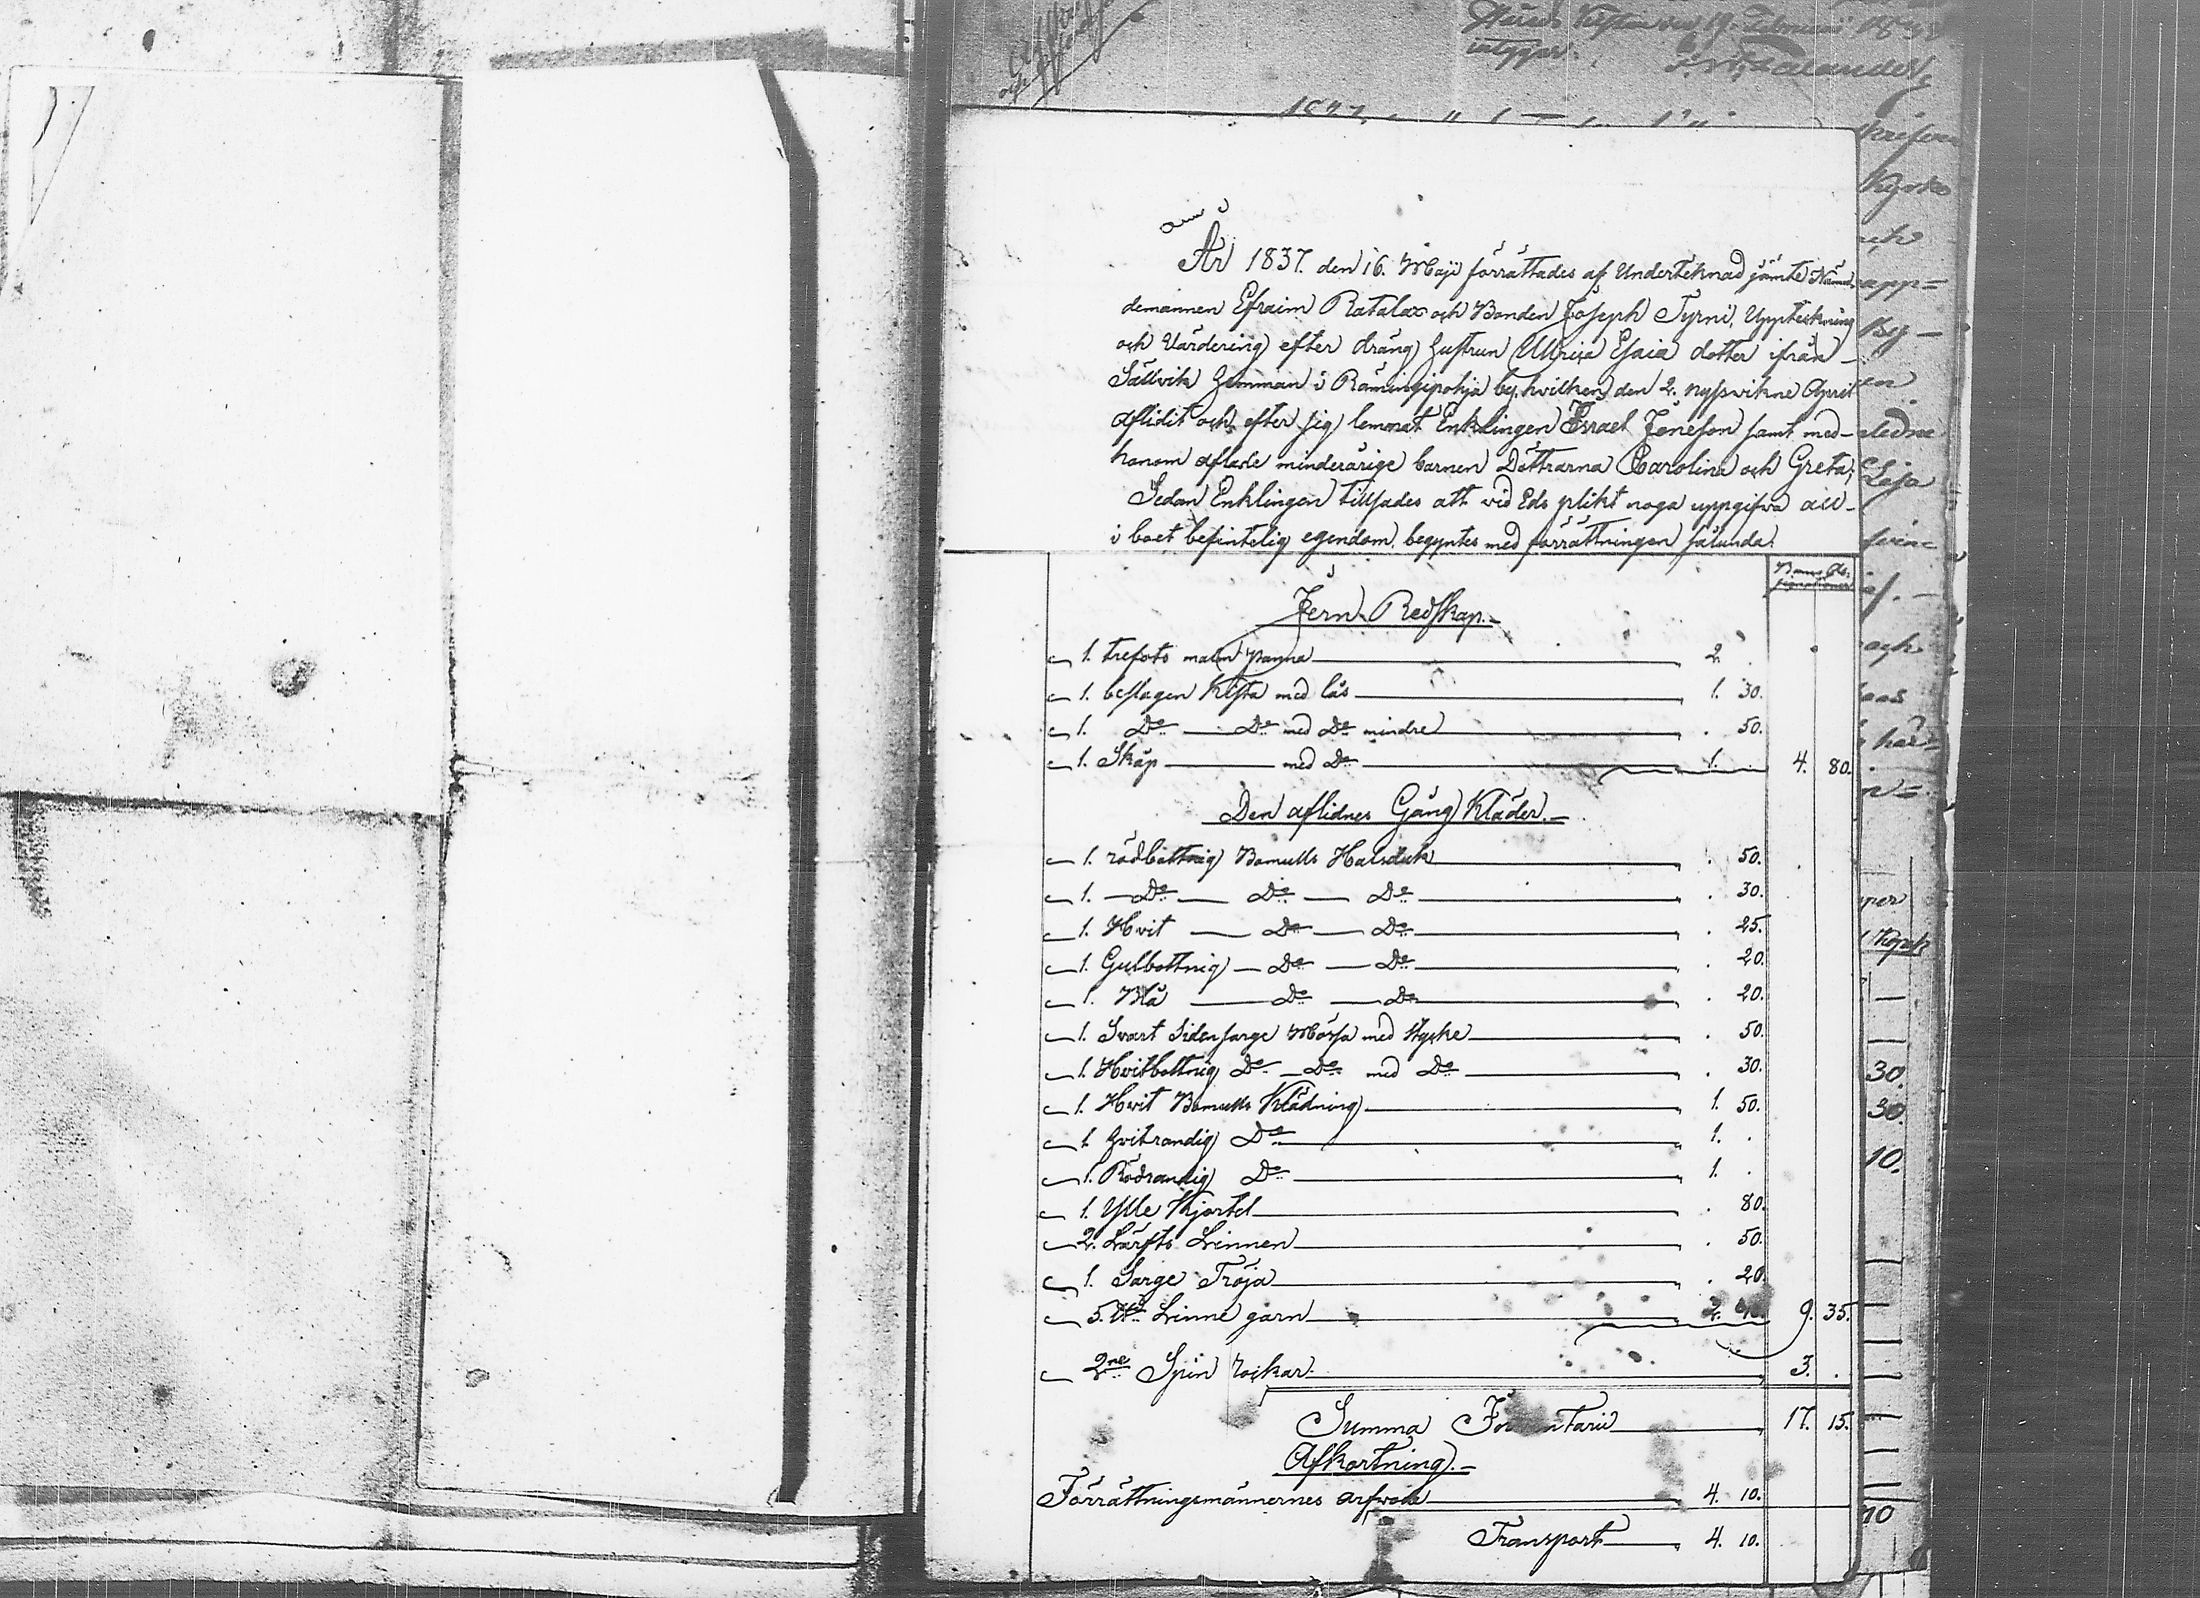 År 1837. den 16. Maji förrättades af Underteknad jämte Nämd-
demannen Efraim Ratalax och Bonden Joseph Tyrni, Uppteckning
och Värdering efter dräng hustrun Ulrica Esaia dotter ifrån
Sällvik hemman i Rämingipohja by, hvilken den 2. nyssvikne April
aflidit och efter sig lemnat Enklingen Israel Jonesson samt med
honom aflade minderårige barnen Döttrarna Carolina och Greta,
Sedan Enklingen tillsades att vid Eds plikt noga uppgifva all
i boet befintelig egendom, begyntes med förrättningen sålunda.
Jern Redskap.
1. trefots malm panna 2.
1. beslagen Kista med lås 1. 30.
1. Do Do med Do mindre . 50.
1. Skåp med Do 1. . 4. 80.
Den aflidnes Gång Kläder.
1. rödbottnig Bomulls Halsduk . 50.
1. Do Do Do . 30.
1. Hvit Do Do . 25.
1. Gulbottnig Do Do . 20.
1. Blå Do Do . 20.
1. Svart Sidensarge Mössa med stycke . 50.
1. Hvitbottnig Do Do med Do . 30.
1. Hvit Bomulls Klädning 1. 50.
1. hvitrandig Do 1. .
1. Rödrandig Do 1. .
1. Ylle Kjortel . 80.
2. Lärfts Linnen . 50.
1. Sarge Tröja . 20.
5. Linne garn 2. 9. 35.
2ne Spin rockar 3. .
Summa 17. 15.
Afkortning.
Förrättningsmännernes arfvode 4. 10.
Transport 4. 10.
30.
30.
10.